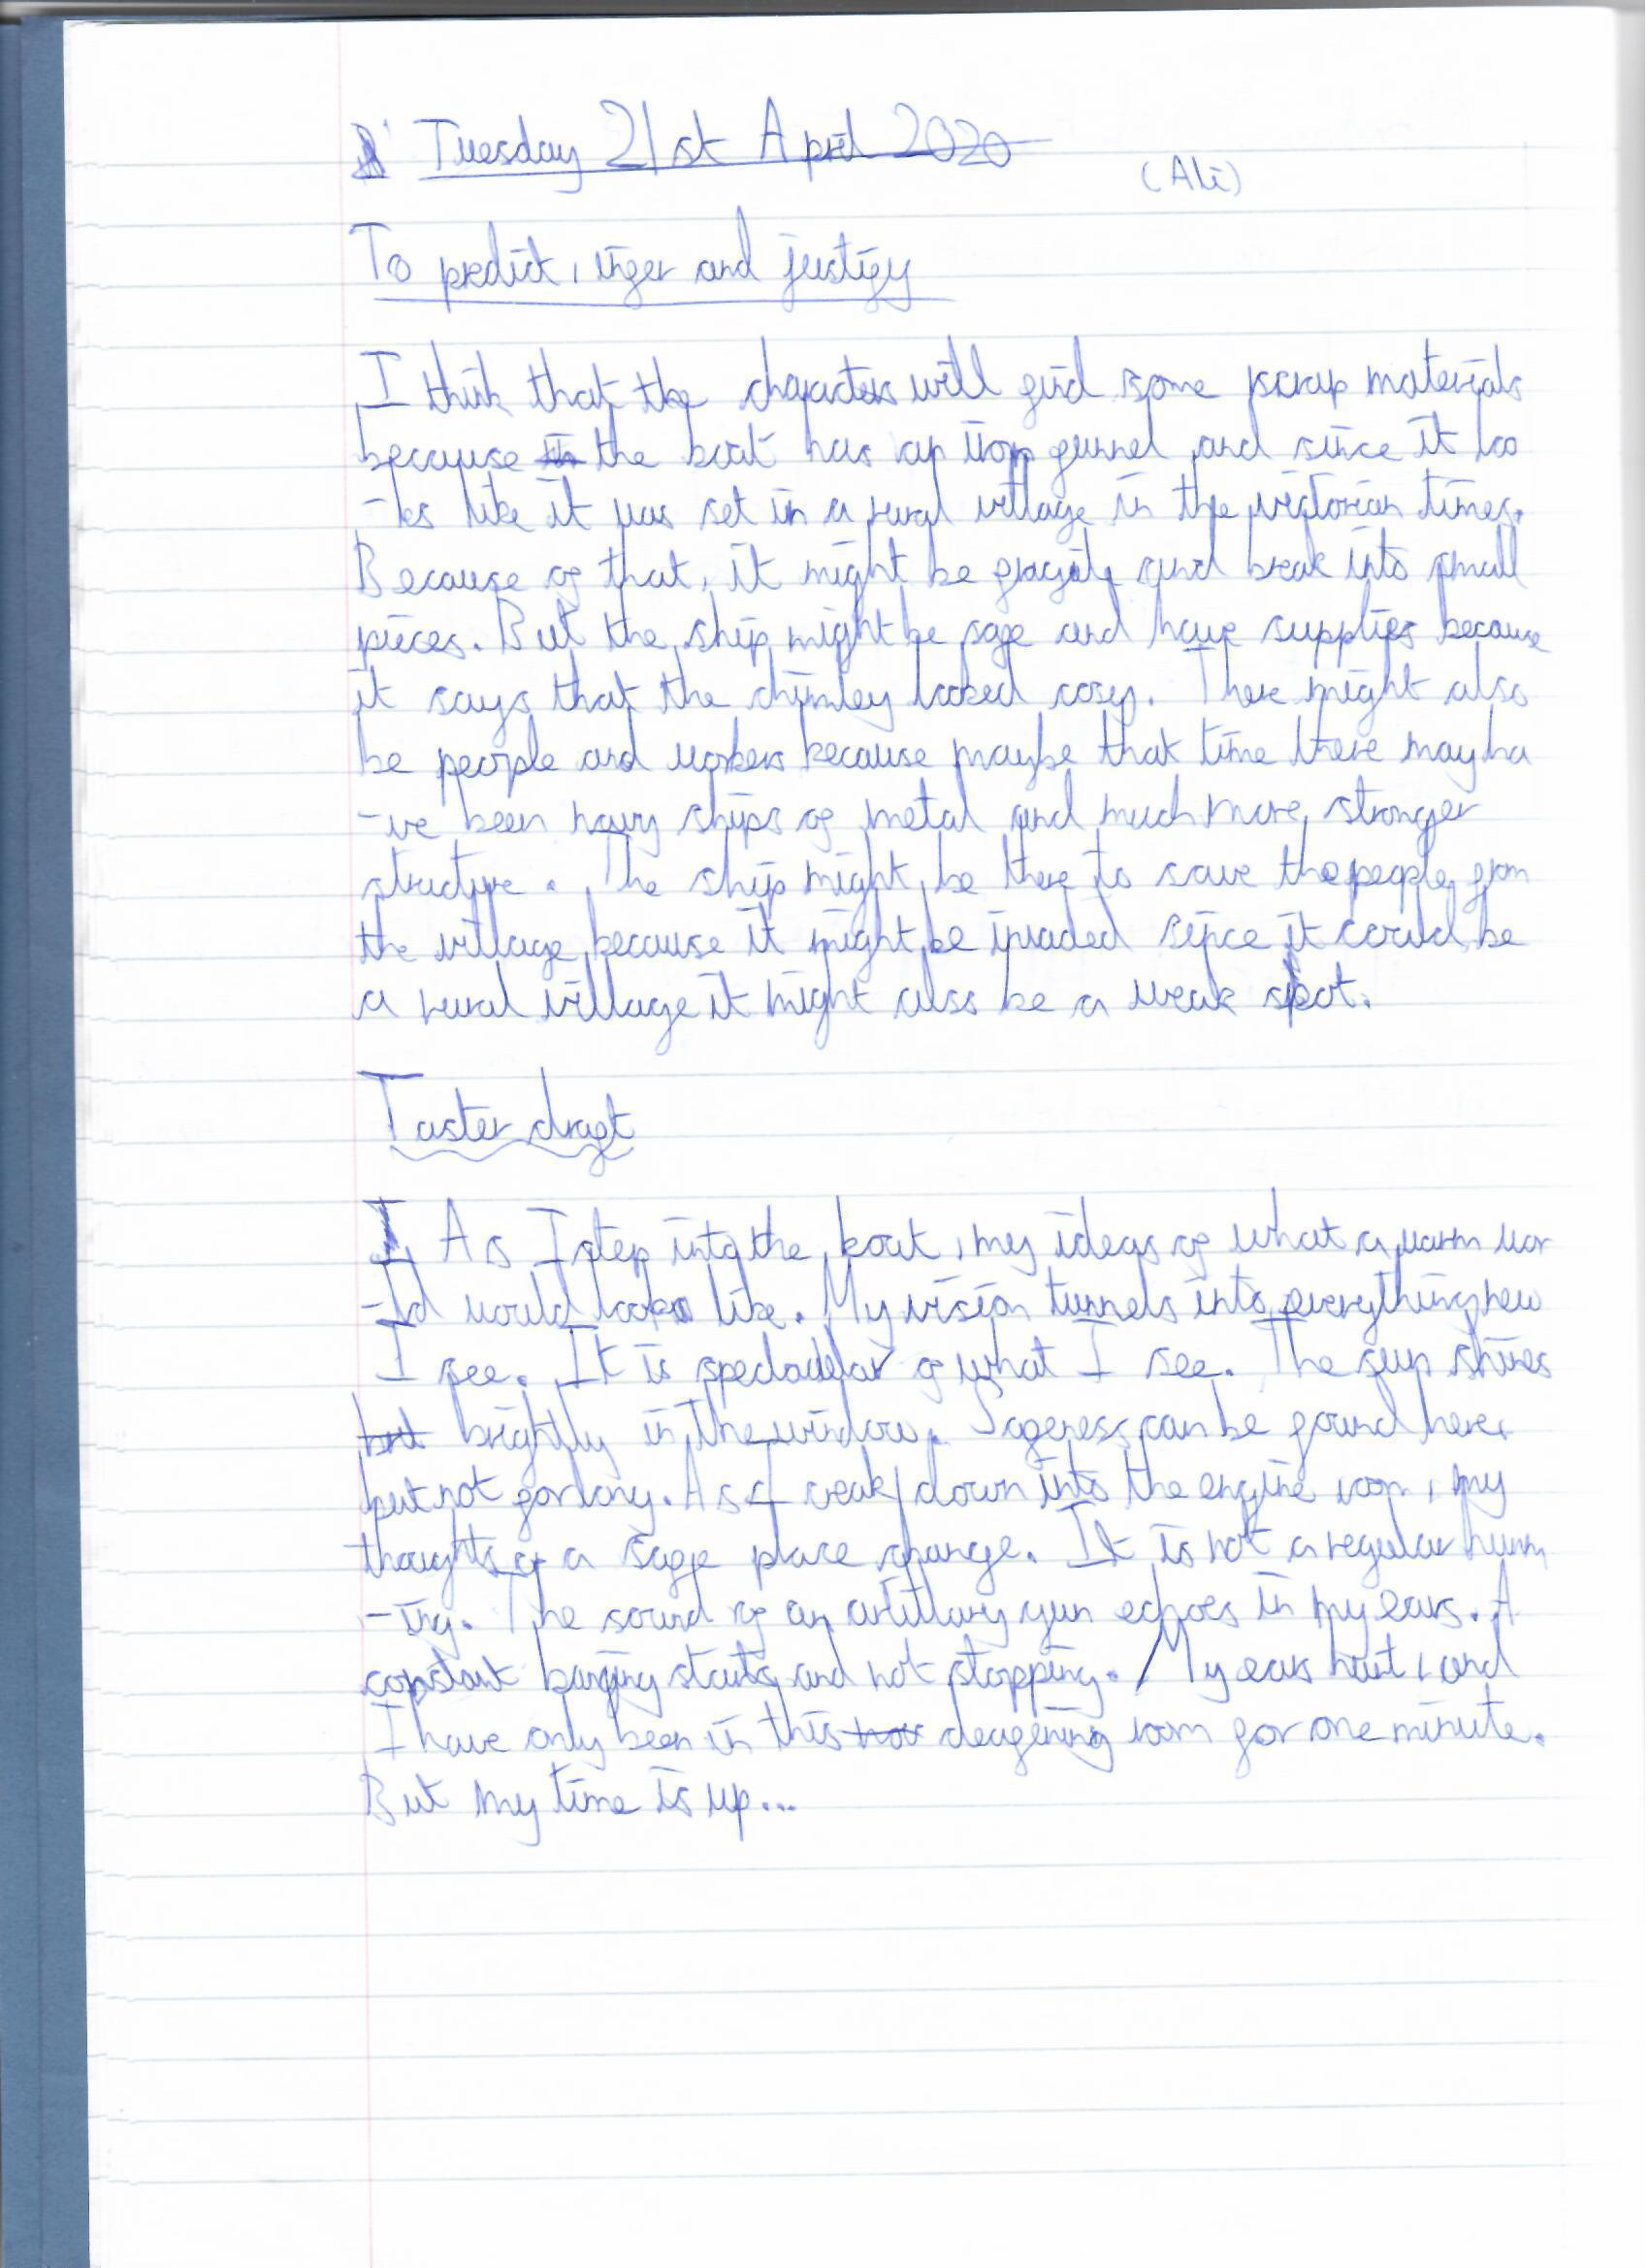 Tuesday 21st April 2020
(Ali)
To predict, infer and justify
I think that the characters will find some scrap materials
because the boat has an iron funnel and since it loo
-ks like it was set in a rural village in the victorian times.
Because of that, it might be fragile and break into small
pieces. But the ship might be safe and have supplies because
it says that the chimley looked cosy. There might also
be people and workers because maybe that time there may ha
-ve been navy ships of metal and much more stronger
structure. The ship might be there to save the people from
the village because it might be invaded since it could be
a rural village it might also be a weak spot.
Taster draft
As I step into the boat, my ideas of what a warm wor
-ld would look like. My vision tunnels into everything new
I see. It is spectacular of what I see. The sun shines
but brightly in the window. Safeness can be found here,
but not for long. As I walk down into the engine room, my
thoughts of a safe place change. It is not a regular humm
-ing. The sound of an artillary gun echoes in my ears. A
constant banging starts and not stopping. My ears hurt, and
I have only been in this deafening room for one minute.
But my time is up...